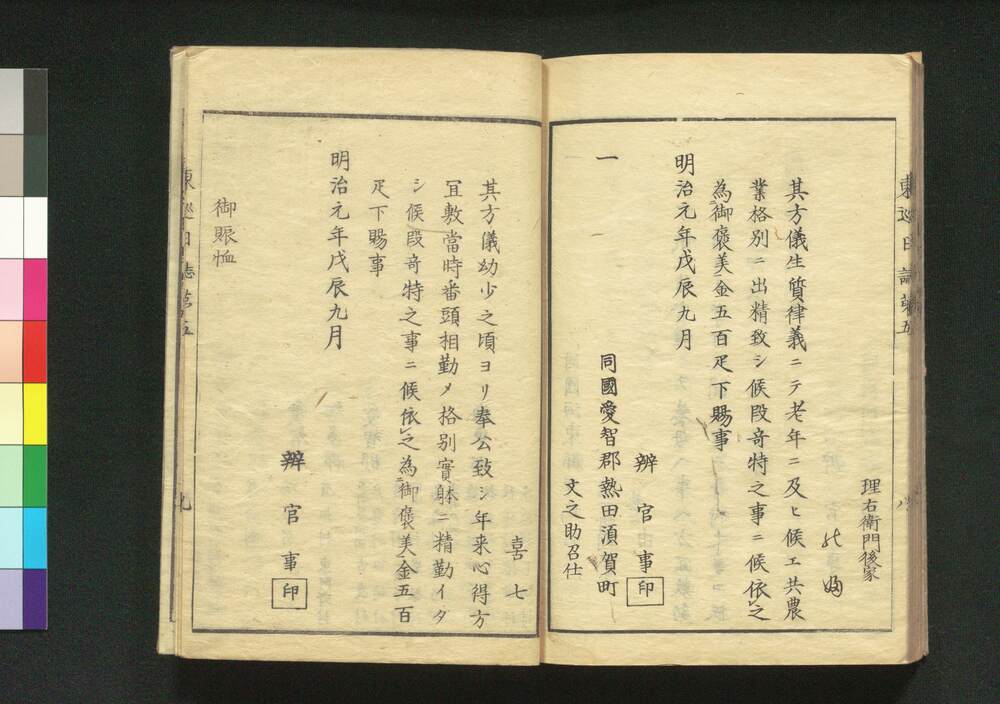 理右衛門後家
其方儀生質律義ニテ老年ニ及ヒ候エ共農
業格別ニ出精致シ候段奇特之事ニ候依之
為御褒美金五百疋下賜事
明治元年戊辰九月
辨官事印
一
同國愛智郡熱田須賀町
文之助召仕
喜七
其方儀幼少之頃ヨリ奉公致シ年来心得方
冝敷當時番頭相勤メ格別實躰ニ精勤イタ
シ候段奇特之事ニ候依之為御褒美金五百
疋下賜事
明治元年戊辰九月
辨官事印
御賑恤
東巡日誌第五
八
東巡日誌第五
九